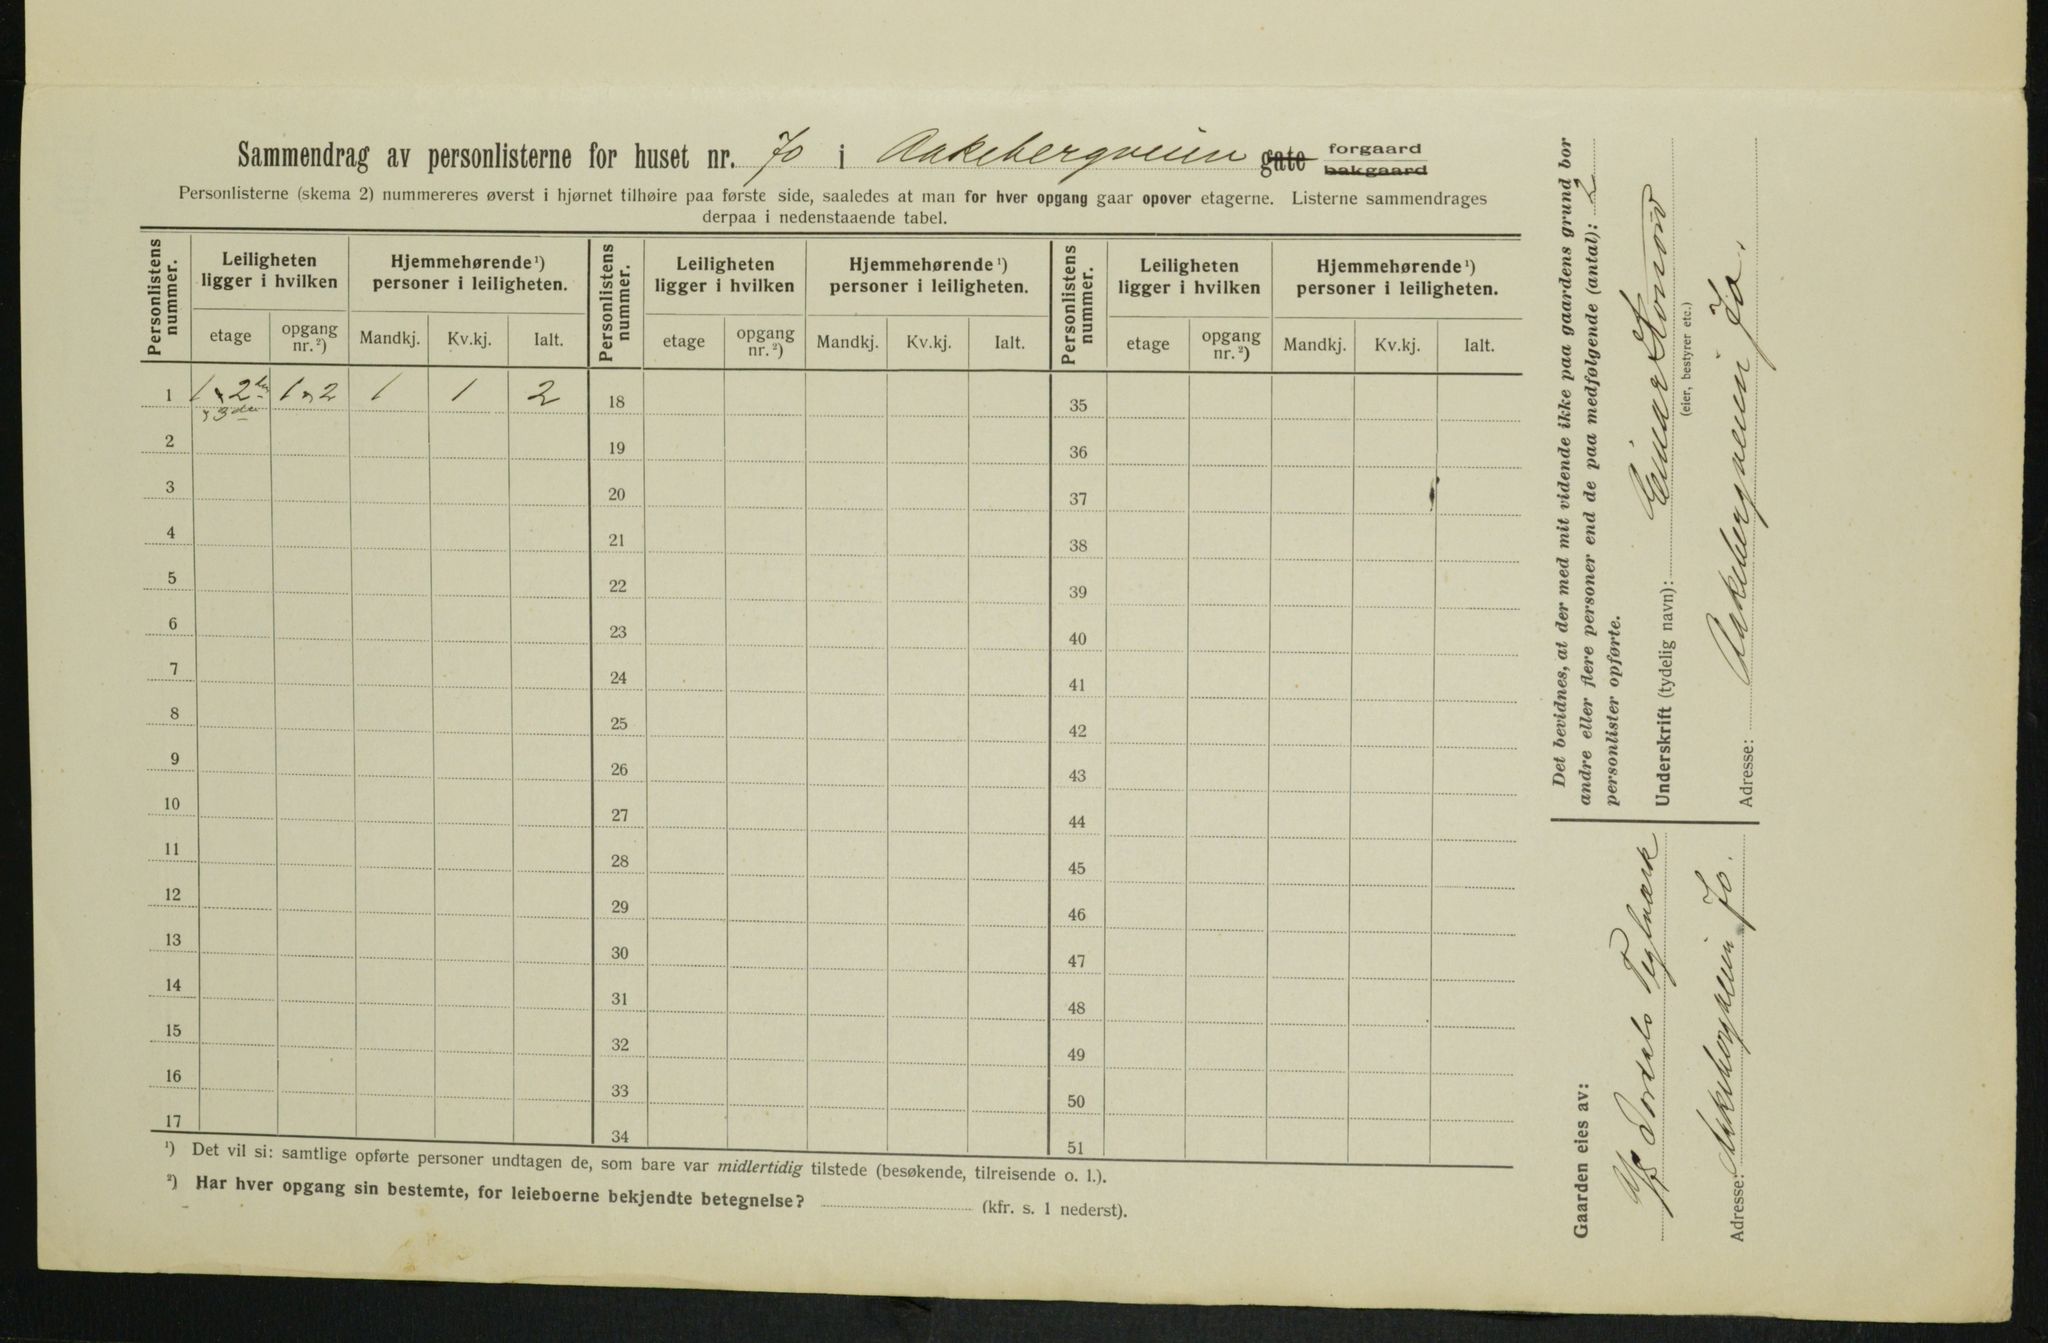 Sammendrag av personlisterne for huset nr. 70 i Aakebergveien gate forgaard bakgaard
Personlisterne (skema 2) nummereres øverst i hjørnet tilhøire paa første side, saaledes at man for hver opgang gaar opover etagerne. Listerne sammendrages
derpaa i nedenstaaende tabel.
Personlistens nummer. Leiligheten ligger i hvilken Hjemmehørende ¹) personer i leiligheten. Personlistens nummer. Leiligheten ligger i hvilken Hjemmehørende ¹) personer i leiligheten. Personlistens nummer. Leiligheten ligger i hvilken Hjemmehørende ¹) personer i leiligheten.
etage opgang nr. ²) Mandkj. Kv.kj. Ialt. etage opgang nr. ²) Mandkj. Kv.kj. Ialt. etage opgang nr. ²) Mandkj. Kv.kj. Ialt.
1 1 2 3 1 2 1 1 2 18 35
2 19 36
3 20 37
4 21 38
5 22 39
6 23 40
7 24 41
8 25 42
9 26 43
10 27 44
11 28 45
12 29 46
13 30 47
14 31 48
15 32 49
16 33 50
17 34 51
¹) Det vil si: samtlige opførte personer undtagen de, som bare var midlertidig tilstede (besøkende, tilreisende o. l.).
²) Har hver opgang sin bestemte, for leieboerne bekjendte betegnelse? (kfr. s. 1 nederst).
Gaarden eies av:
Teglverk
Adresse: Aakebergveien 70.
Det bevidnes, at der med mit vidende ikke paa gaardens grund bor
andre eller flere personer end de paa medfølgende (antal): 2
personlister opførte.
Underskrift (tydelig navn): Einar
(eier, bestyrer etc.)
Adresse: Aakebergveien 70.